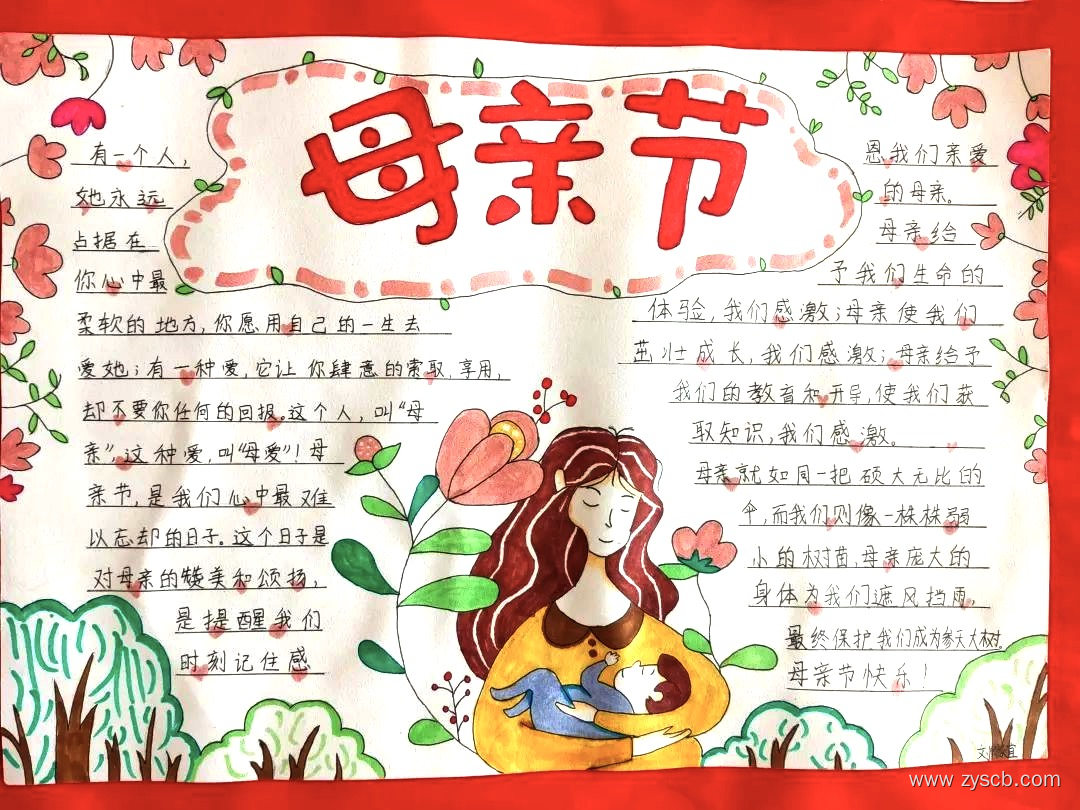 母亲节
有一个人,
她永远
占据在
你心中最
柔软的地方,你愿用自己的一生去
爱她;有一种爱,它让你肆意的索取,享用,
却不要你任何的回报。这个人,叫“母
亲”,这种爱,叫“母爱”!母
亲节,是我们心中最难
以忘却的日子。这个日子是
对母亲的赞美和颂扬,
是提醒我们
时刻记住感
恩我们亲爱
的母亲。
母亲给
予我们生命的
体验,我们感激;母亲使我们
茁壮成长,我们感激;母亲给予
我们的教育和开导,使我们获
取知识,我们感激。
母亲就如同一把硕大无比的
伞,而我们则像一株株弱
小的树苗,母亲庞大的
身体为我们遮风挡雨,
最终保护我们成为参天大树。
母亲节快乐!
www.zyscb.com